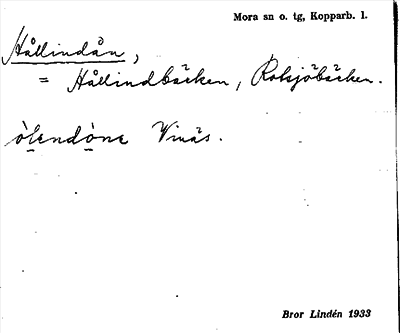 Mora sn o. tg, Kopparb. l.
Hållindån,
= Hållindbäcken, Rotsjöbäcken.
Vinäs.
Bror Lindén 1933